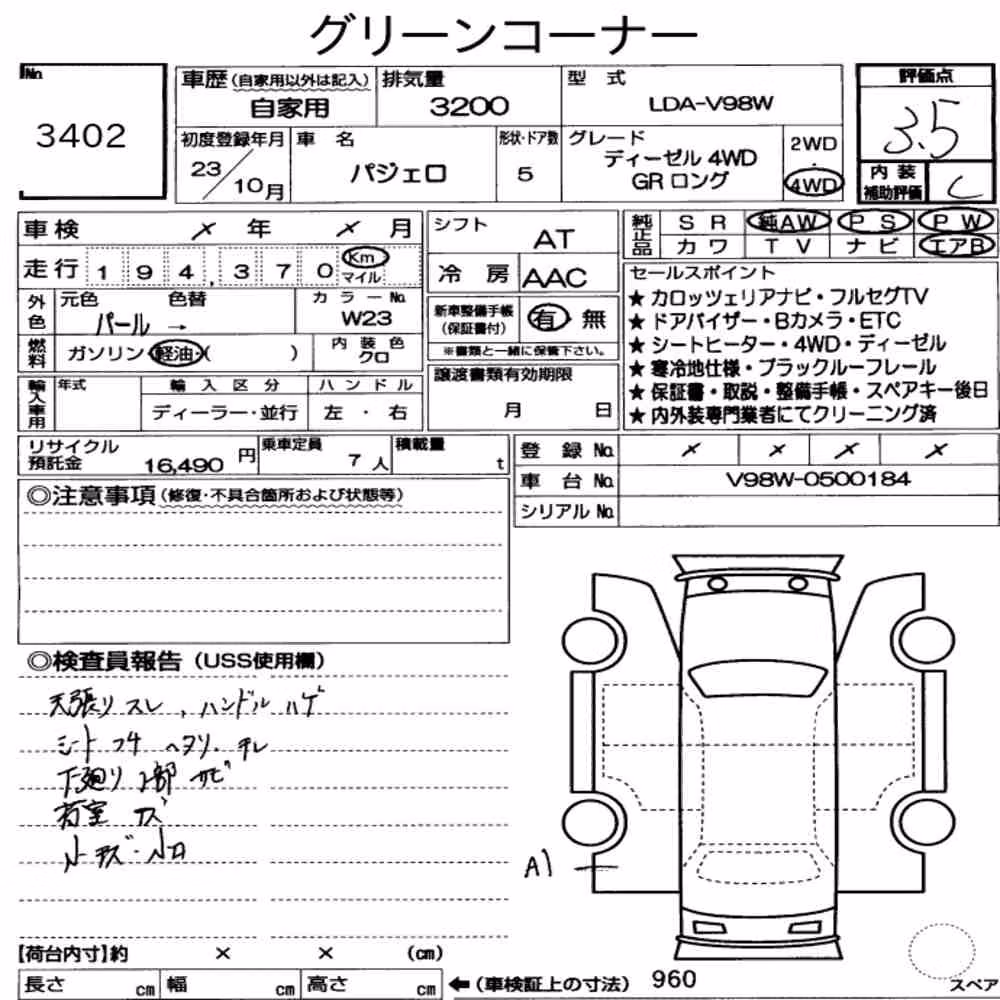 グリーンコーナー
No.
3402
車歴(自家用以外は記入)
自家用
排気量
3200
型 式
LDA-V98W
評価点
3.5
初度登録年月
23/10月
車 名
パジェロ
形状・ドア数
5
グレード
ディーゼル 4WD
GR ロング
2WD
・
4WD
内 装
補助評価
C
車検 × 年 × 月
走行 194,370 Km
マイル
シフト
AT
冷 房 AAC
純正品 SR 純AW PS PW
カワ TV ナビ エアB
外色
元色 色替
パール →
カラーNo.
W23
燃料
ガソリン・軽油・( )
内 装 色
クロ
新車整備手帳
(保証書付)
有 無
※書類と一緒に保管下さい。
セールスポイント
★ カロッツェリアナビ・フルセグTV
★ ドアバイザー・Bカメラ・ETC
★ シートヒーター・4WD・ディーゼル
★ 寒冷地仕様・ブラックルーフレール
★ 保証書・取説・整備手帳・スペアキー後日
★ 内外装専門業者にてクリーニング済
輸入車用
年式
輸 入 区 分
ディーラー・並行
ハ ン ド ル
左 ・ 右
譲渡書類有効期限
月 日
リサイクル
預託金 16,490 円
乗車定員
7 人
積載量
t
登 録 No. × × × ×
車 台 No. V98W-0500184
シリアル No.
◎注意事項(修復・不具合箇所および状態等)
◎検査員報告(USS使用欄)
天張りスレ、ハンドルハゲ
シートコゲ ヘタリ・チレ
下廻り 部 サビ
荷室 キズ
小キズ・小凹
A1
【荷台内寸】約 × × (cm)
長さ cm 幅 cm 高さ cm
←(車検証上の寸法) 960
スペア